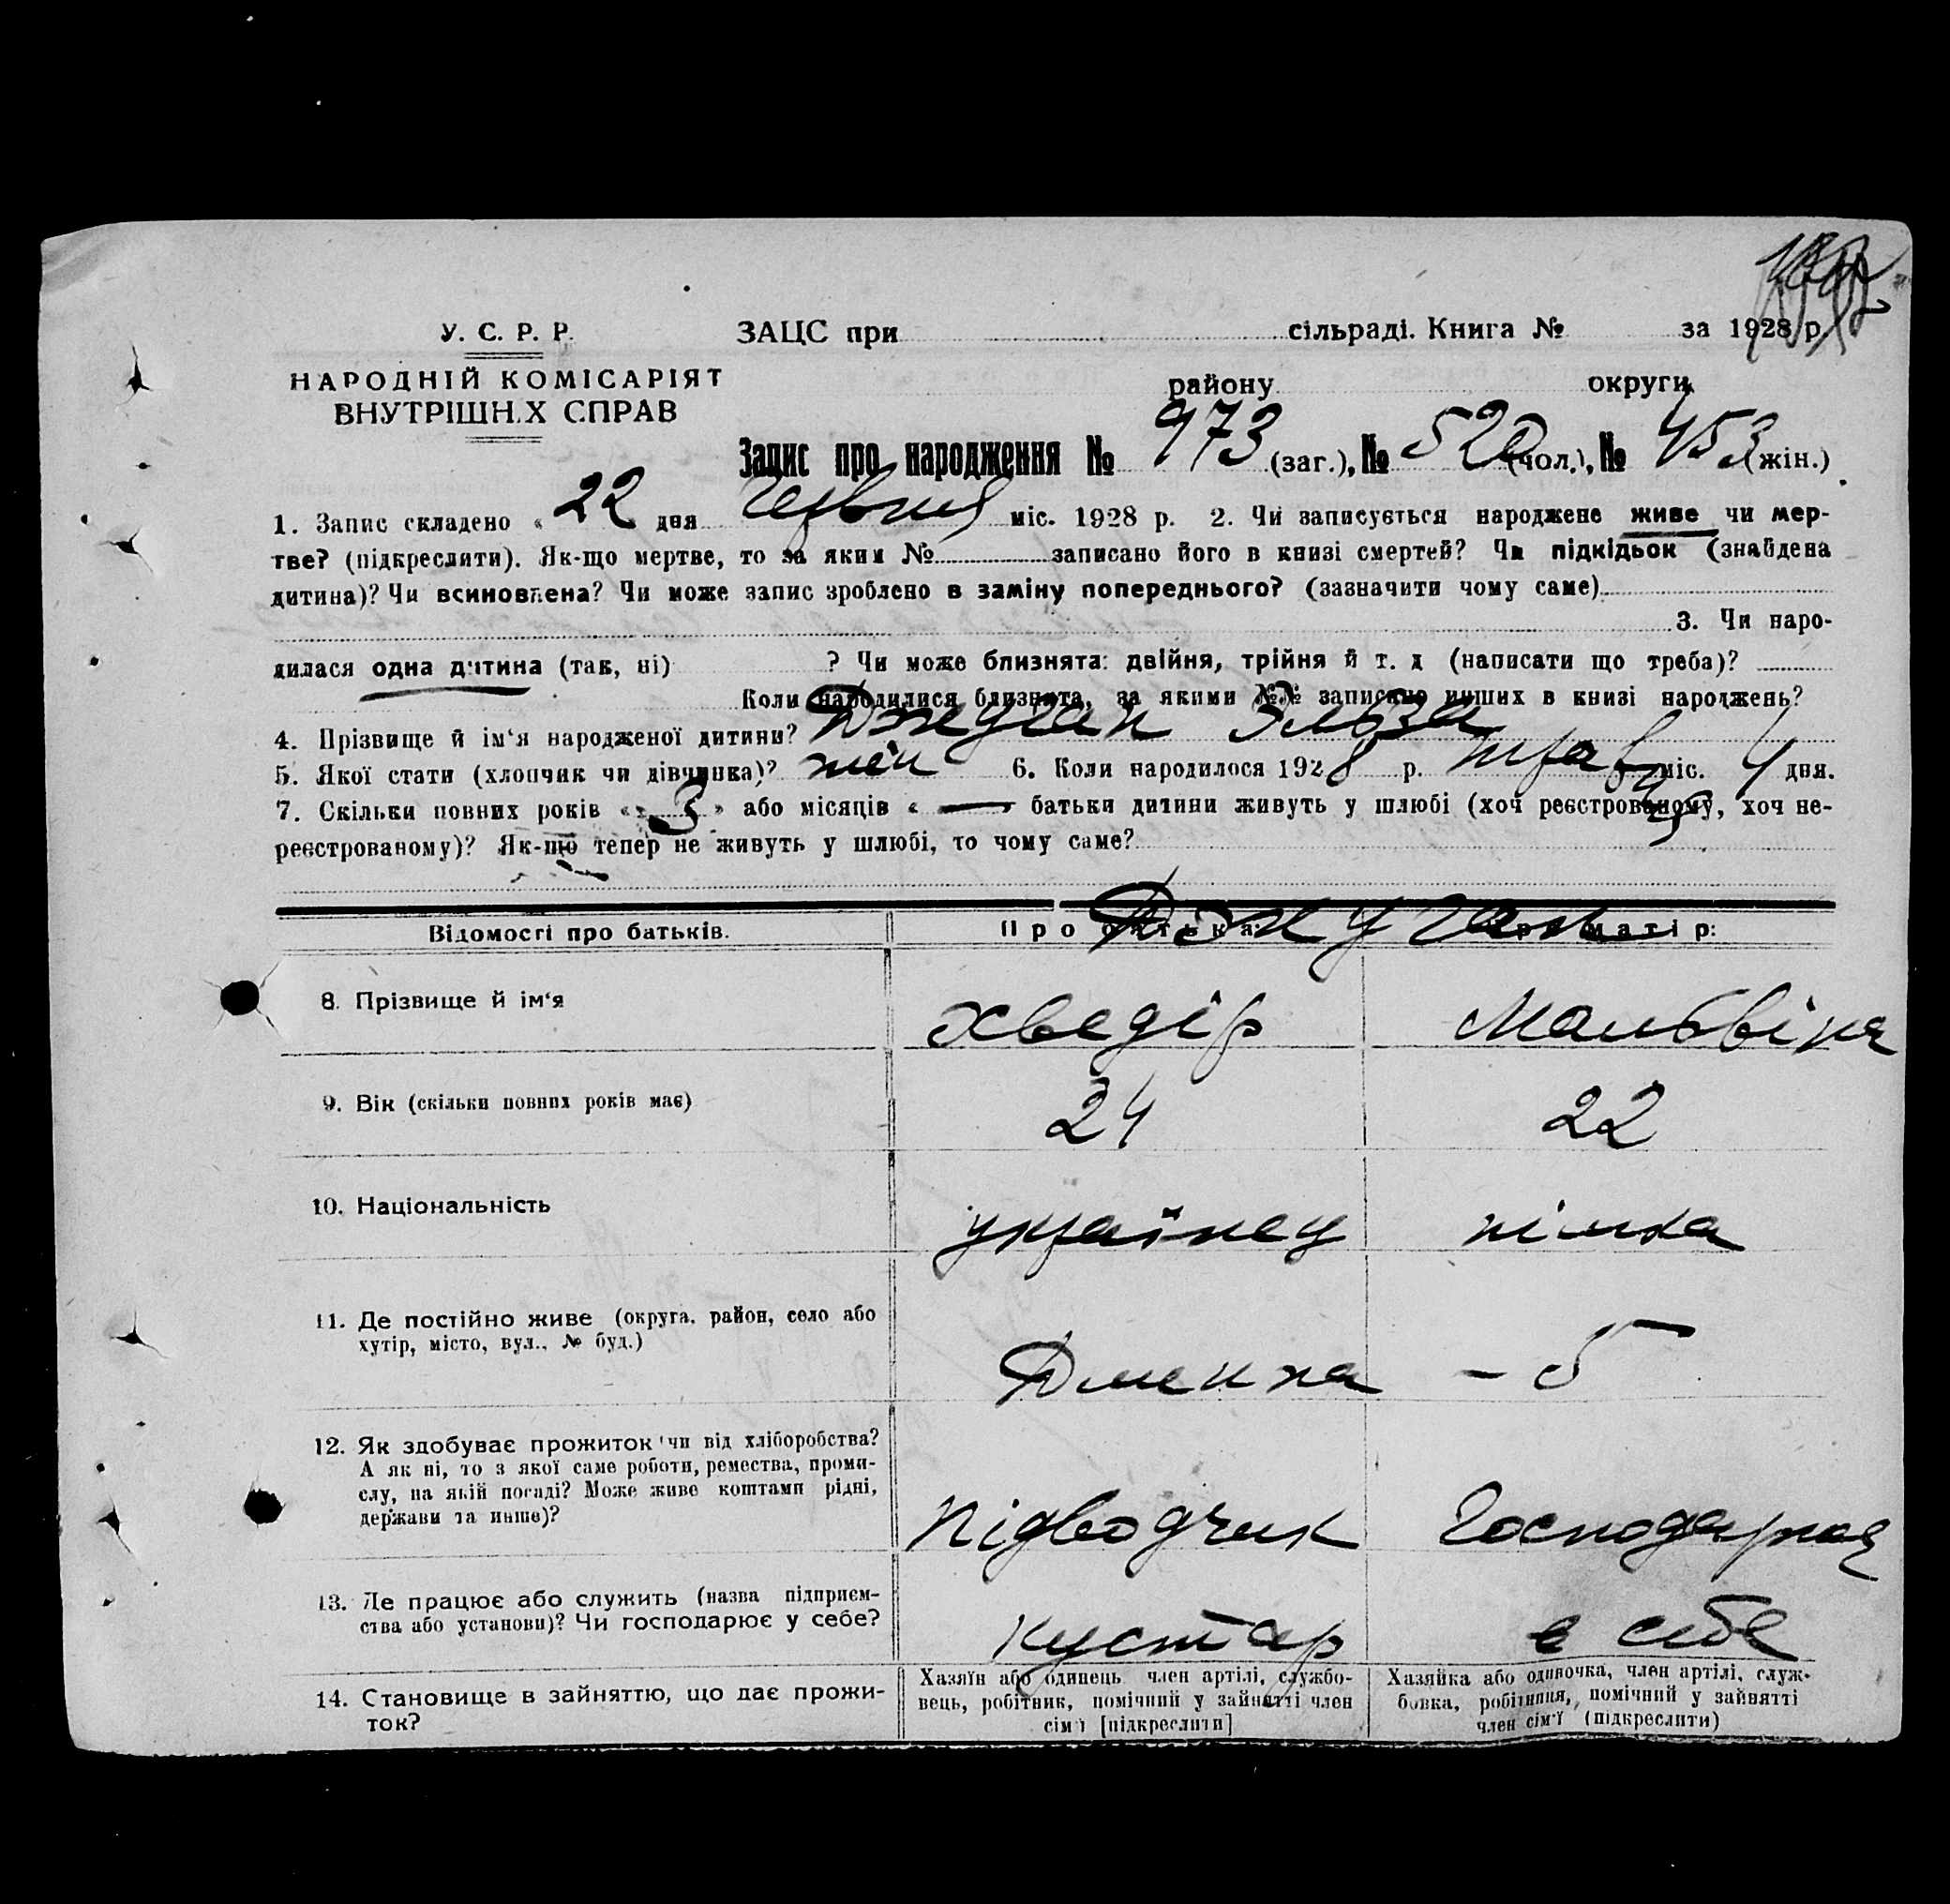 У. С. Р. Р.
ЗАЦС при сільраді. Книга № за 1928 р.
НАРОДНІЙ КОМІСАРІЯТ
ВНУТРІШНІХ СПРАВ
району округи
Запис про народження № 973 (заг.), № 520 (чол.), № 453 (жін.)
1. Запис складено « 22 дня червня міс. 1928 р. 2. Чи записується народжене живе чи мер-
тве? (підкреслити). Як-що мертве, то за яким № записано його в книзі смертей? Чи підкідьок (знайдена
дитина)? Чи всиновлена? Чи може запис зроблено в заміну попереднього? (зазначити чому саме)
3. Чи наро-
дилася одна дитина (так, ні) ? Чи може близнята: двійня, трійня й т. д (написати що треба)?
Коли народилися близнята, за якими №№ записано инших в книзі народжень?
4. Прізвище й ім‘я народженої дитини? Эльза
5. Якої стати (хлопчик чи дівчинка)? жін 6. Коли народилося 1928 р. трав міс. 4 дня.
7. Скільки повних років « 3 » або місяців « — батьки дитини живуть у шлюбі (хоч реєстрованому, хоч не-
реєстрованому)? Як-що тепер не живуть у шлюбі, то чому саме?
Відомості про батьків. Про батька: Про матір:
8. Прізвище й ім‘я Хведір Мальвіна
9. Вік (скільки повних років має) 24 22
10. Національність українец німка
11. Де постійно живе (округа, район, село або
хутір, місто, вул., № буд.) – 5
12. Як здобуває прожиток чи від хліборобства?
А як ні, то з якої саме роботи, ремества, проми-
слу, на якій посаді? Може живе коштами рідні,
держави та инше)? Підводчик Господарка
13. Де працює або служить (назва підприєм-
ства або установи)? Чи господарює у себе? кустар в себе
14. Становище в зайняттю, що дає прожи-
ток?
Хазяїн або одинець член артілі, службо-
вець, робітник, помічний у зайнятті член
сім‘ї [підкреслити]
Хазяйка або одиночка, член артілі, служ-
бовка, робітниця, помічний у зайнятті
член сім‘ї (підкреслити)